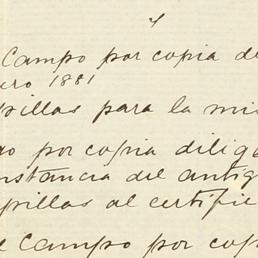 Campo por copia de
ero 1881
pillas para la mis
do por copia dilig
nstancia del antig
pillas al certifie
e Campo por cop